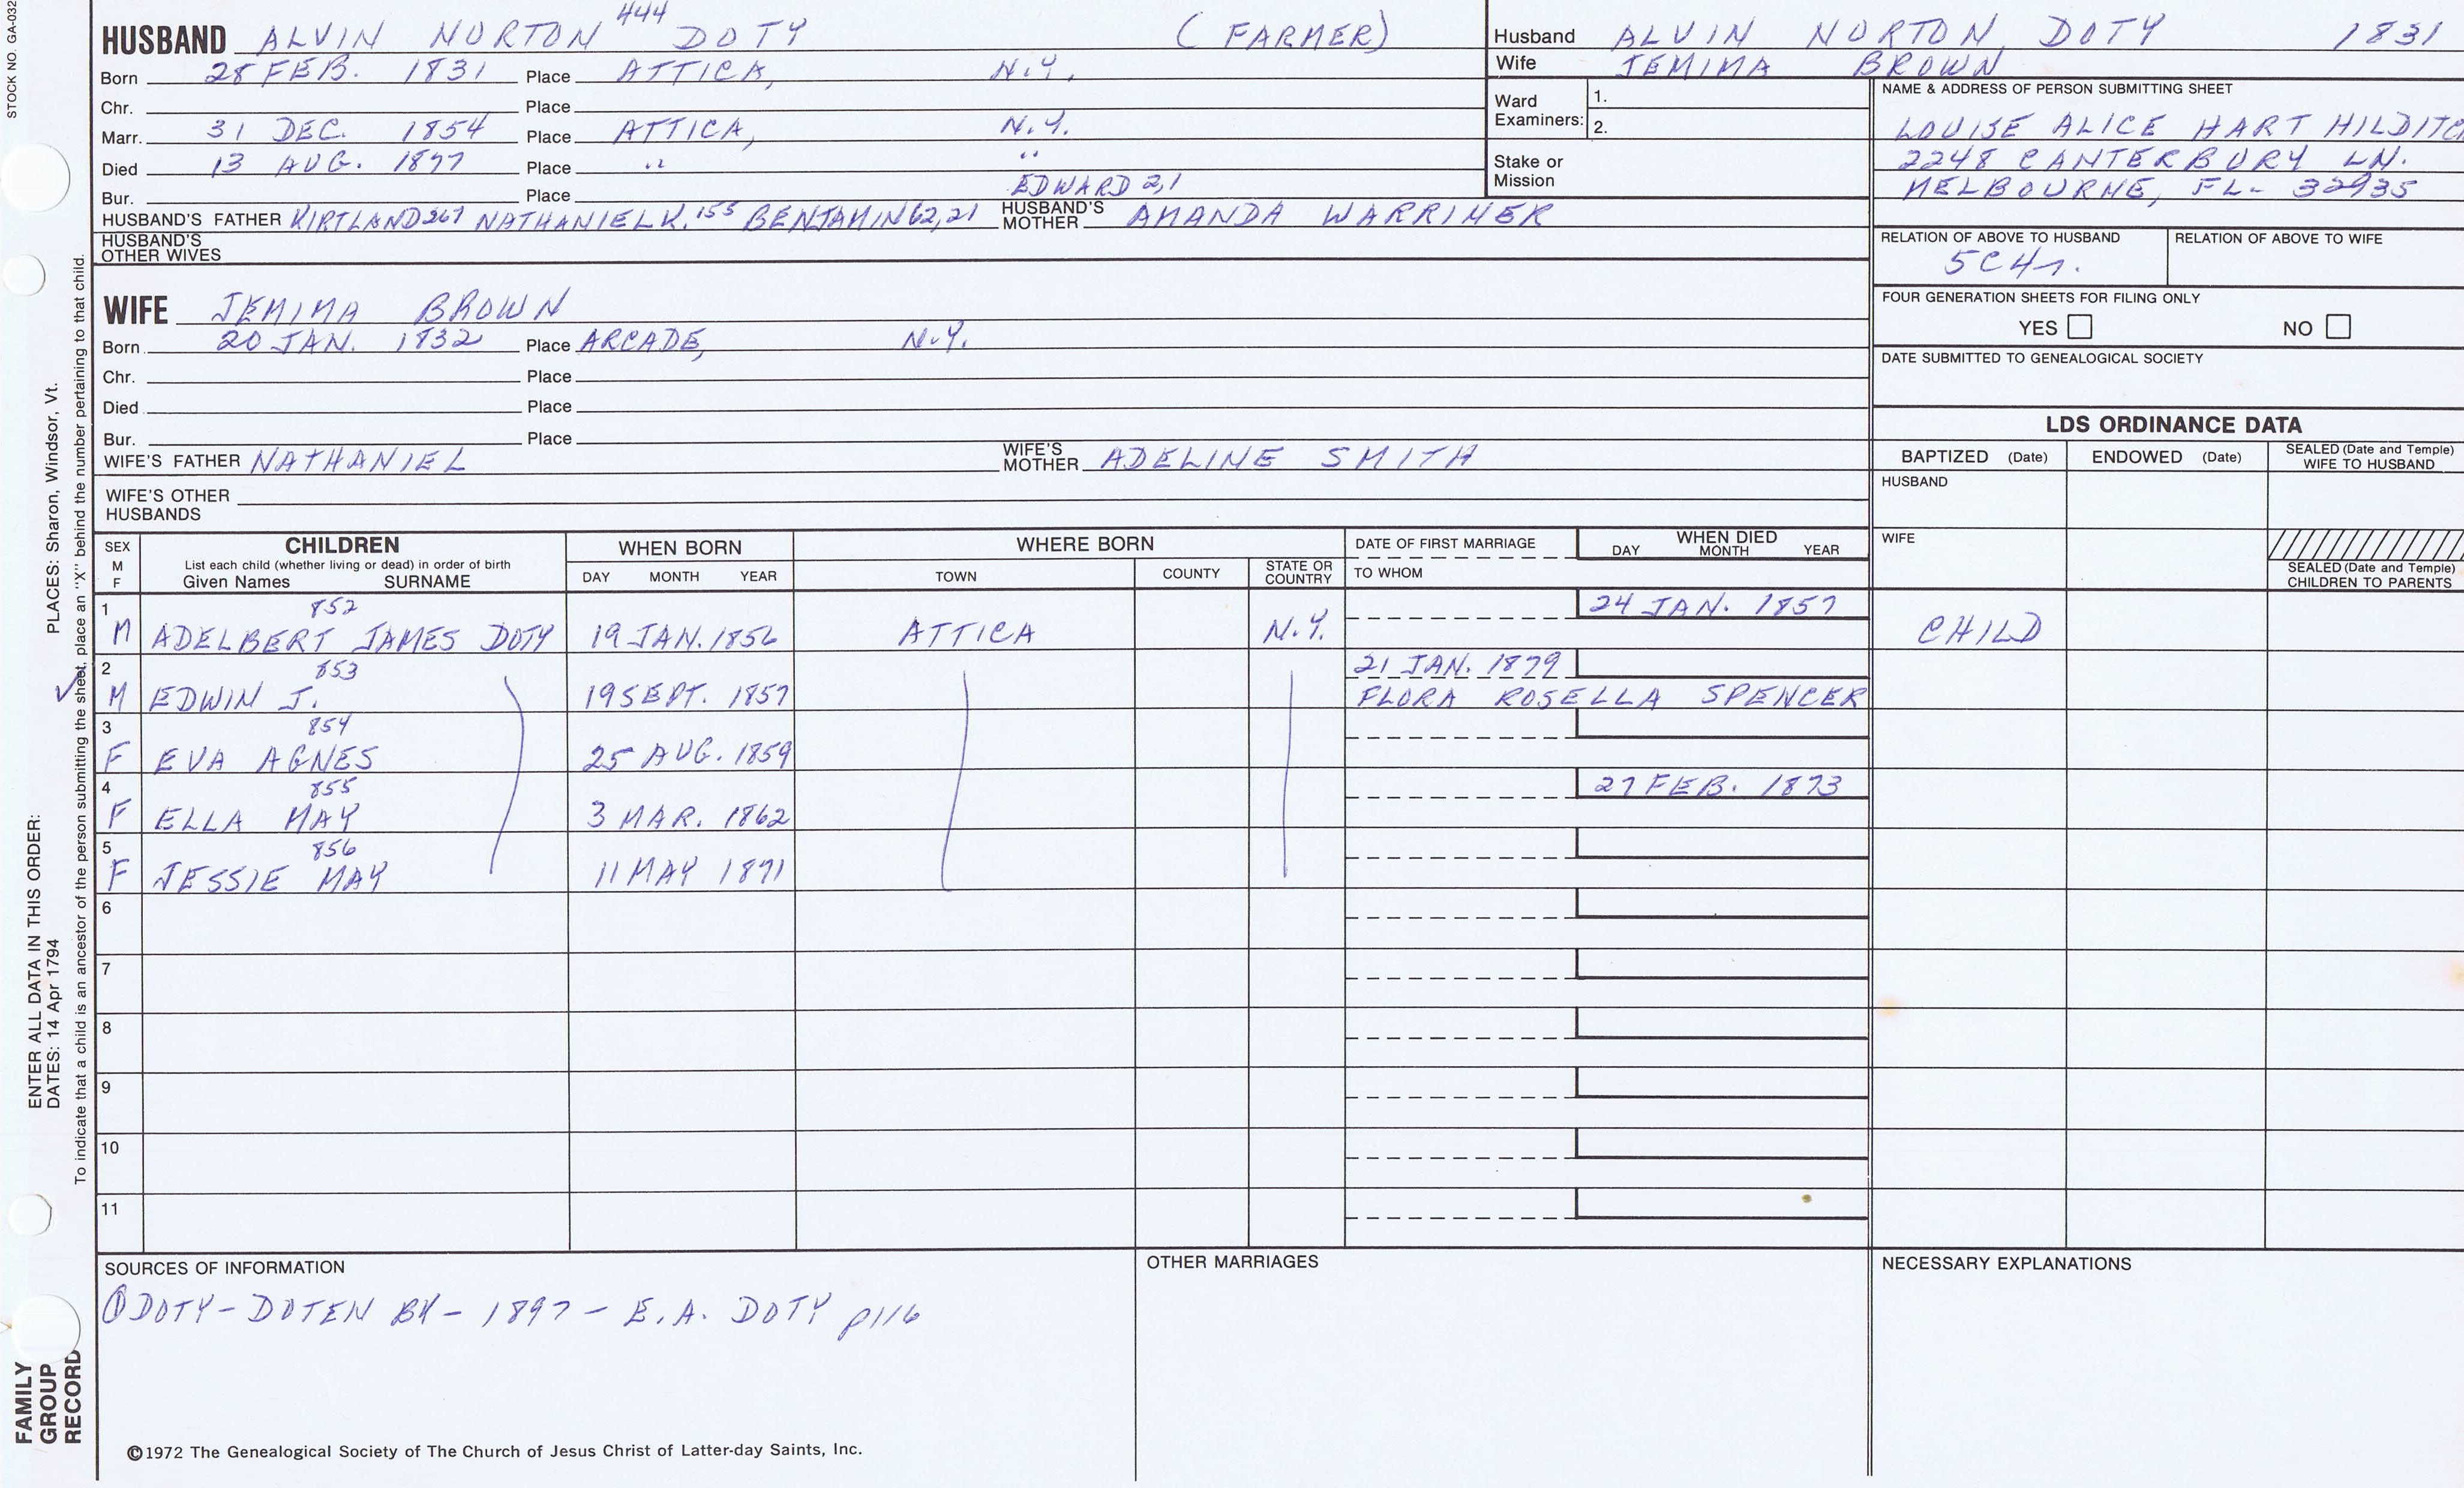 STOCK NO. GA-032
HUSBAND ALVIN NORTON 444 DOTY (FARMER)
Born 28 FEB. 1831 Place ATTICA, N.Y.
Chr. Place
Marr. 31 DEC. 1854 Place ATTICA, N.Y.
Died 13 AUG. 1877 Place " "
Bur. Place EDWARD 2,1
HUSBAND'S FATHER KIRTLAND 267 NATHANIEL K. 155 BENJAMIN 62,21 HUSBAND'S MOTHER AMANDA WARRINER
HUSBAND'S OTHER WIVES
WIFE JEMIMA BROWN
Born 20 JAN. 1832 Place ARCADE, N.Y.
Chr. Place
Died Place
Bur. Place
WIFE'S FATHER NATHANIEL WIFE'S MOTHER ADELINE SMITH
WIFE'S OTHER HUSBANDS
Husband ALVIN NORTON DOTY 1831
Wife JEMIMA BROWN
Ward Examiners: 1.
2.
Stake or Mission
NAME & ADDRESS OF PERSON SUBMITTING SHEET
LOUISE ALICE HART HILDITC
2248 CANTERBURY LN.
MELBOURNE, FL- 32935
RELATION OF ABOVE TO HUSBAND RELATION OF ABOVE TO WIFE
5C4r.
FOUR GENERATION SHEETS FOR FILING ONLY
YES NO
DATE SUBMITTED TO GENEALOGICAL SOCIETY
LDS ORDINANCE DATA
BAPTIZED (Date) ENDOWED (Date) SEALED (Date and Temple) WIFE TO HUSBAND
HUSBAND
WIFE
SEALED (Date and Temple) CHILDREN TO PARENTS
SEX M F
CHILDREN
List each child (whether living or dead) in order of birth
Given Names SURNAME
WHEN BORN
DAY MONTH YEAR
WHERE BORN
TOWN COUNTY STATE OR COUNTRY
DATE OF FIRST MARRIAGE
TO WHOM
WHEN DIED
DAY MONTH YEAR
1 852 24 JAN. 1857
M ADELBERT JAMES DOTY 19 JAN. 1856 ATTICA N.Y. CHILD
2 853 21 JAN. 1879
M EDWIN J. 19 SEPT. 1857 FLORA ROSELLA SPENCER
3 854
F EVA AGNES 25 AUG. 1859
4 855 27 FEB. 1873
F ELLA MAY 3 MAR. 1862
5 856
F JESSIE MAY 11 MAY 1871
6
7
8
9
10
11
SOURCES OF INFORMATION
① DOTY-DOTEN BK- 1897 - E.A. DOTY p116
OTHER MARRIAGES
NECESSARY EXPLANATIONS
©1972 The Genealogical Society of The Church of Jesus Christ of Latter-day Saints, Inc.
FAMILY
GROUP
RECORD
ENTER ALL DATA IN THIS ORDER:
DATES: 14 Apr 1794 PLACES: Sharon, Windsor, Vt.
To indicate that a child is an ancestor of the person submitting the sheet, place an "X" behind the number pertaining to that child.